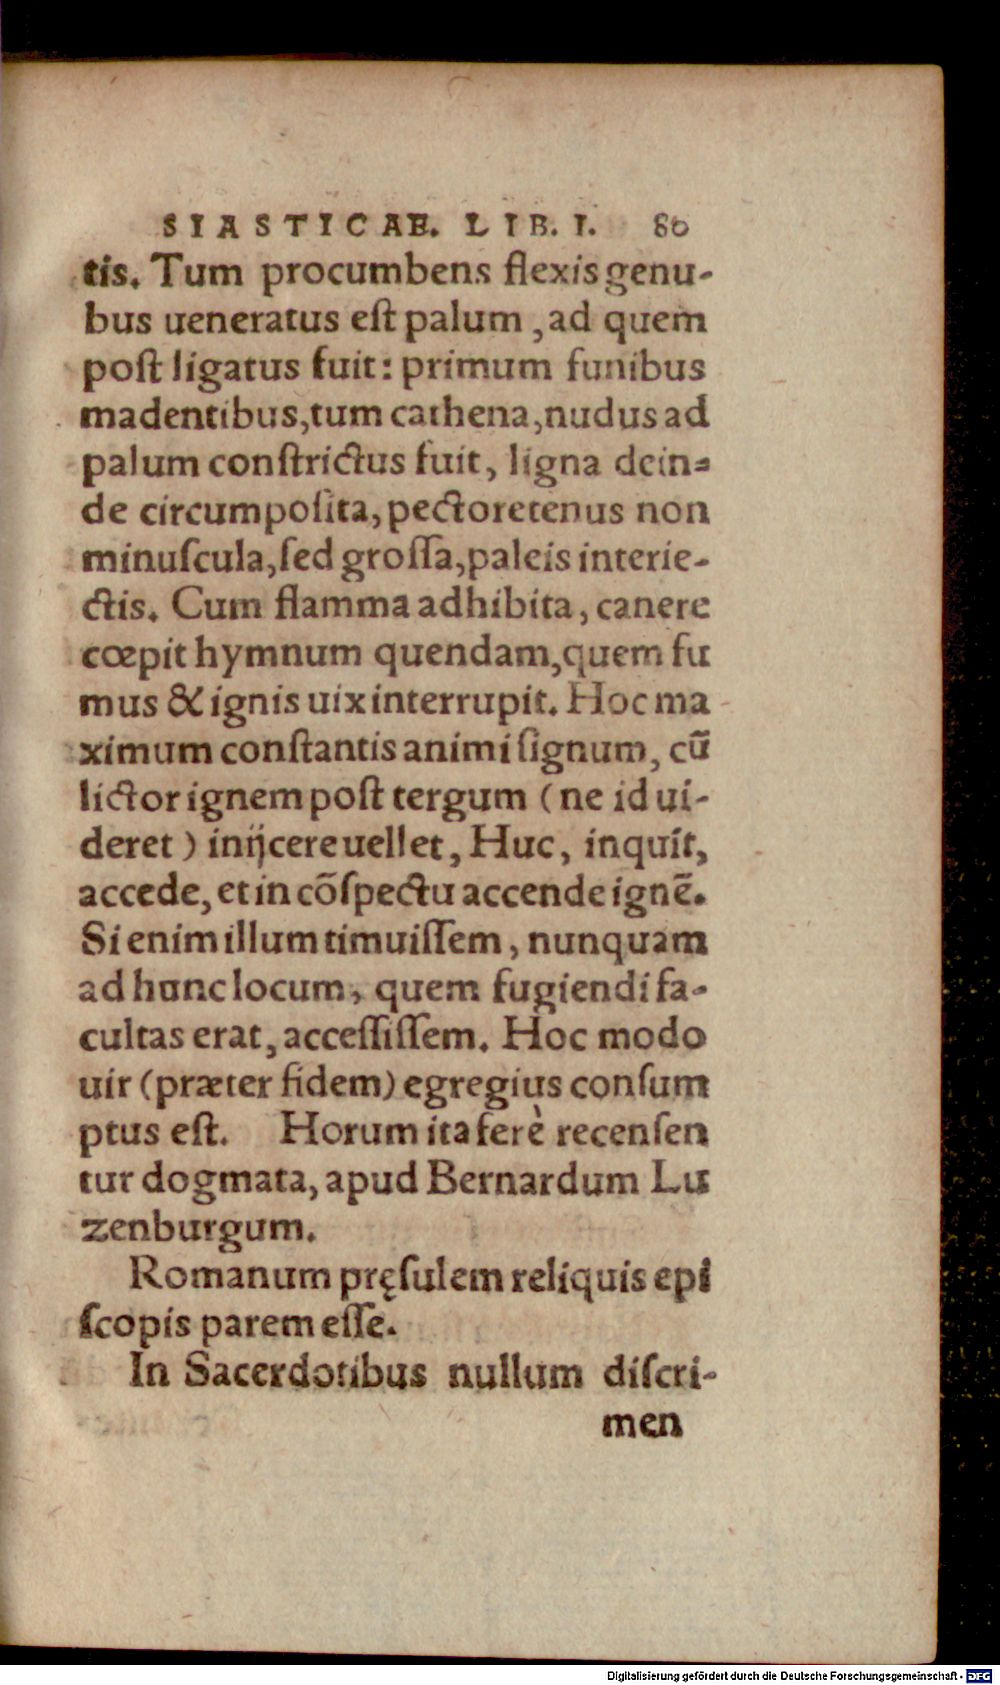 SIASTICAE. LIB. I. 80
tis. Tum procumbens flexis genu-
bus ueneratus eſt palum, ad quem
poſt ligatus fuit: primum funibus
madentibus, tum cathena, nudus ad
palum conſtrictus fuit, ligna dein-
de circumpoſita, pectoretenus non
minuſcula, ſed groſſa, paleis interie-
ctis. Cum flamma adhibita, canere
cœpit hymnum quendam, quem fu
mus & ignis uix interrupit. Hoc ma
ximum conſtantis animi ſignum, cũ
lictor ignem poſt tergum (ne id ui-
deret) inijcere uellet, Huc, inquit,
accede, et in cõſpectu accende ignẽ.
Si enim illum timuiſſem, nunquam
ad hunc locum, quem fugiendi fa-
cultas erat, acceſſiſſem. Hoc modo
uir (præter fidem) egregius conſum
ptus eſt. Horum ita ferè recenſen
tur dogmata, apud Bernardum Lu
zenburgum.
Romanum pręſulem reliquis epi
ſcopis parem eſſe.
In Sacerdotibus nullum diſcri-
men
Digitalisierung gefördert durch die Deutsche Forschungsgemeinschaft - DFG